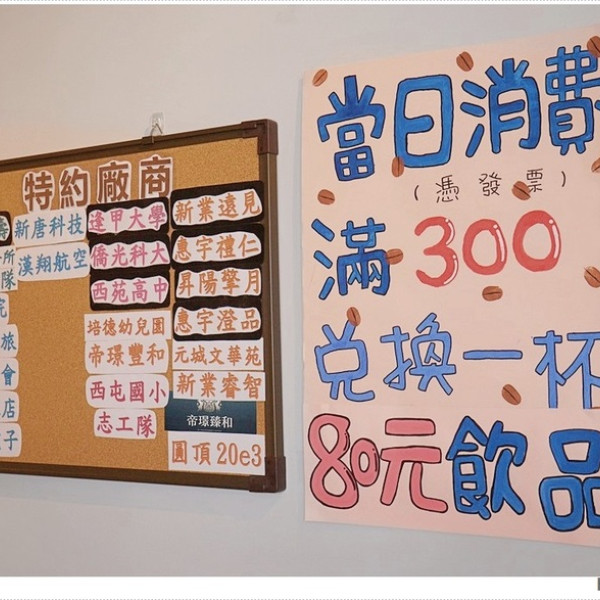 特約廠商
新唐科技
漢翔航空
逢甲大學
僑光科大
西苑高中
培德幼兒園
帝璟豐和
西屯國小
志工隊
新業遠見
惠宇禮仁
昇陽擎月
惠宇澄品
元城文華苑
新業睿智
帝璟臻和
圓頂20e3
所
隊
院
旅
會
店
子
當日消費
(憑發票)
滿300
兌換一杯
80元飲品